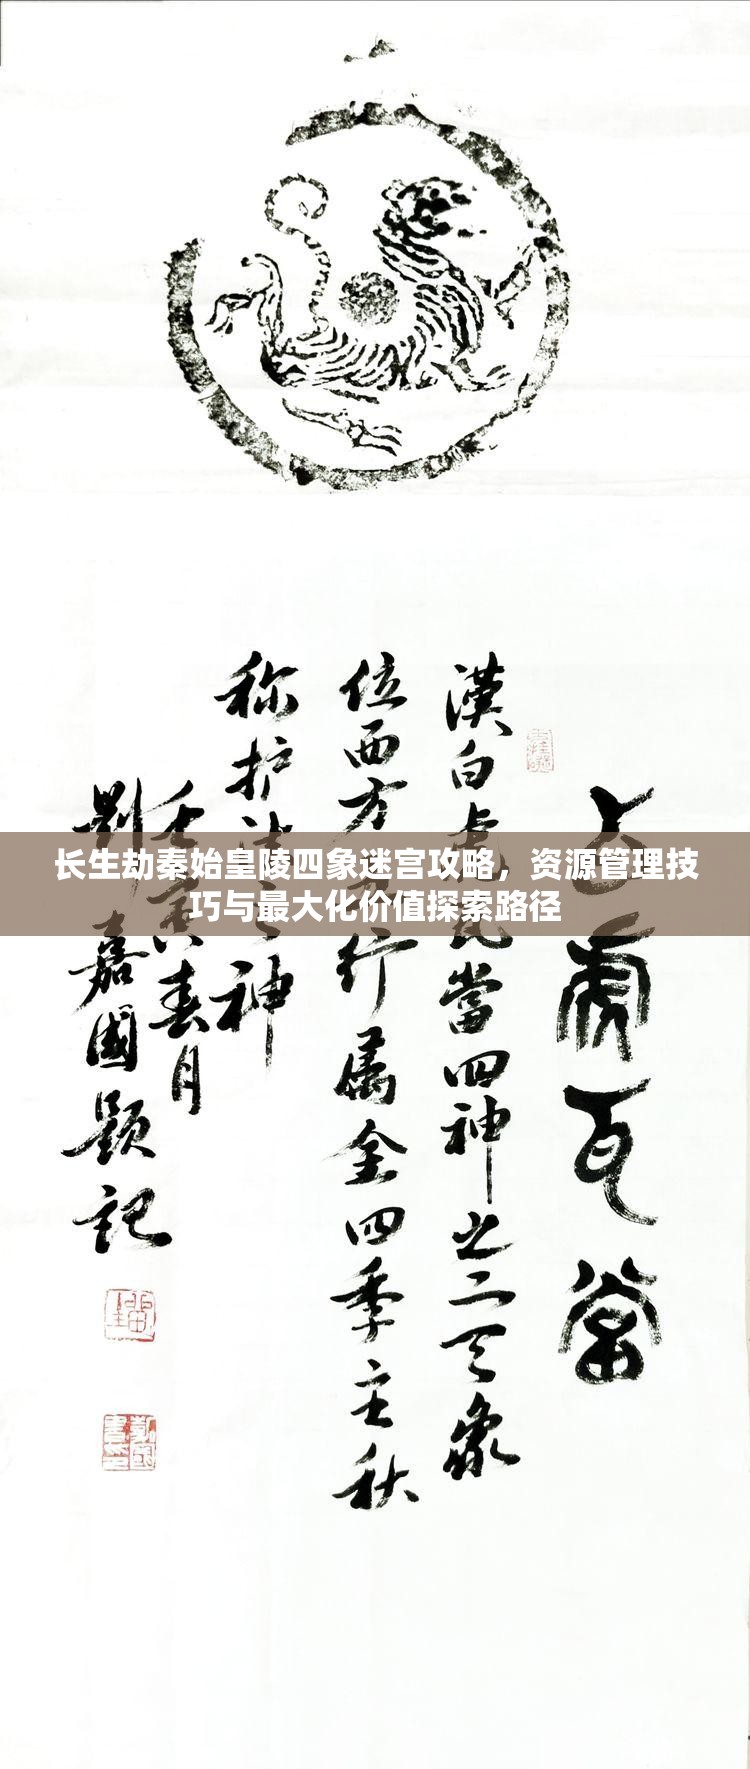 长生劫秦始皇陵四象迷宫攻略，资源管理技
巧与最大化价值探索路径
虎瓦當
漢白虎瓦當四神之二天象
位西方五行属金四季主秋
称护法之神
壬寅春月
刘嘉國题記